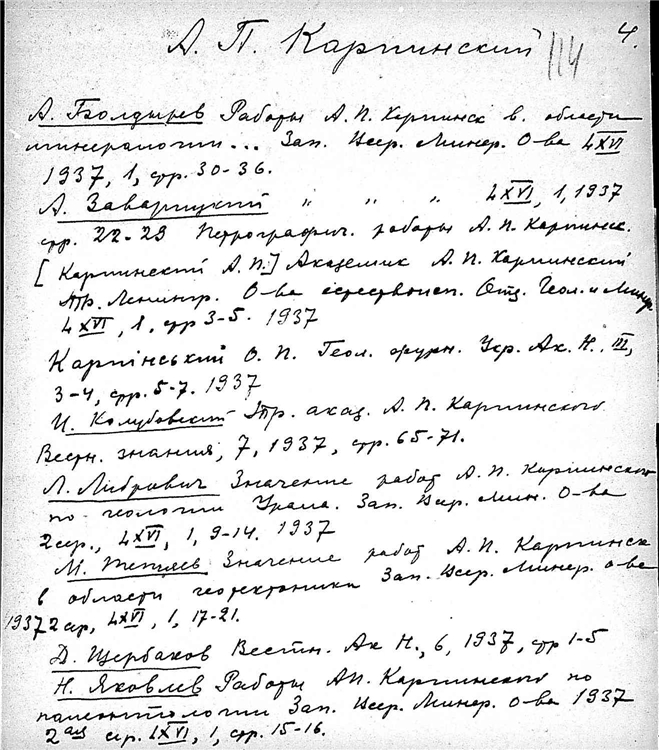 4.
А. П. Карпинский 114
А. Болдырев Работы А. П. Карпинск в. области
минералогии... Зап. Всер. Минер. О-ва LXVI
1937, 1, стр. 30-36.
А. Заварицкий " " " LXVI, 1, 1937
стр. 22-29 Петрографич. работы А. П. Карпинск.
[Карпинский А. П.] Академик А. П. Карпинский
Тр. Ленингр. О-ва естествоисп. Отд. Геол. и Минер.
LXVI, 1, стр 3-5. 1937
Карпінський О. П. Геол. журн. Укр. Ак. Н. III,
3-4, стр. 5-7. 1937
И. Колубовский Тр. акад. А. П. Карпинского
Вестн. знания, 7, 1937, стр. 65-71.
Л. Либрович Значение работ А. П. Карпинского
по геологии Урала. Зап. Всер. Мин. О-ва
2 сер., LXVI, 1, 9-14. 1937
М. Тетяев Значение работ А. П. Карпинск
в области геотектоники Зап. Всер. Минер. о-ва
1937 2 сер, LXVI, 1, 17-21.
Д. Щербаков Вестн. Ак Н., 6, 1937, стр 1-5
Н. Яковлев Работы А.П. Карпинского по
палеонтологии Зап. Всер. Минер. о-ва 1937
2ая сер. LXVI, 1, стр. 15-16.